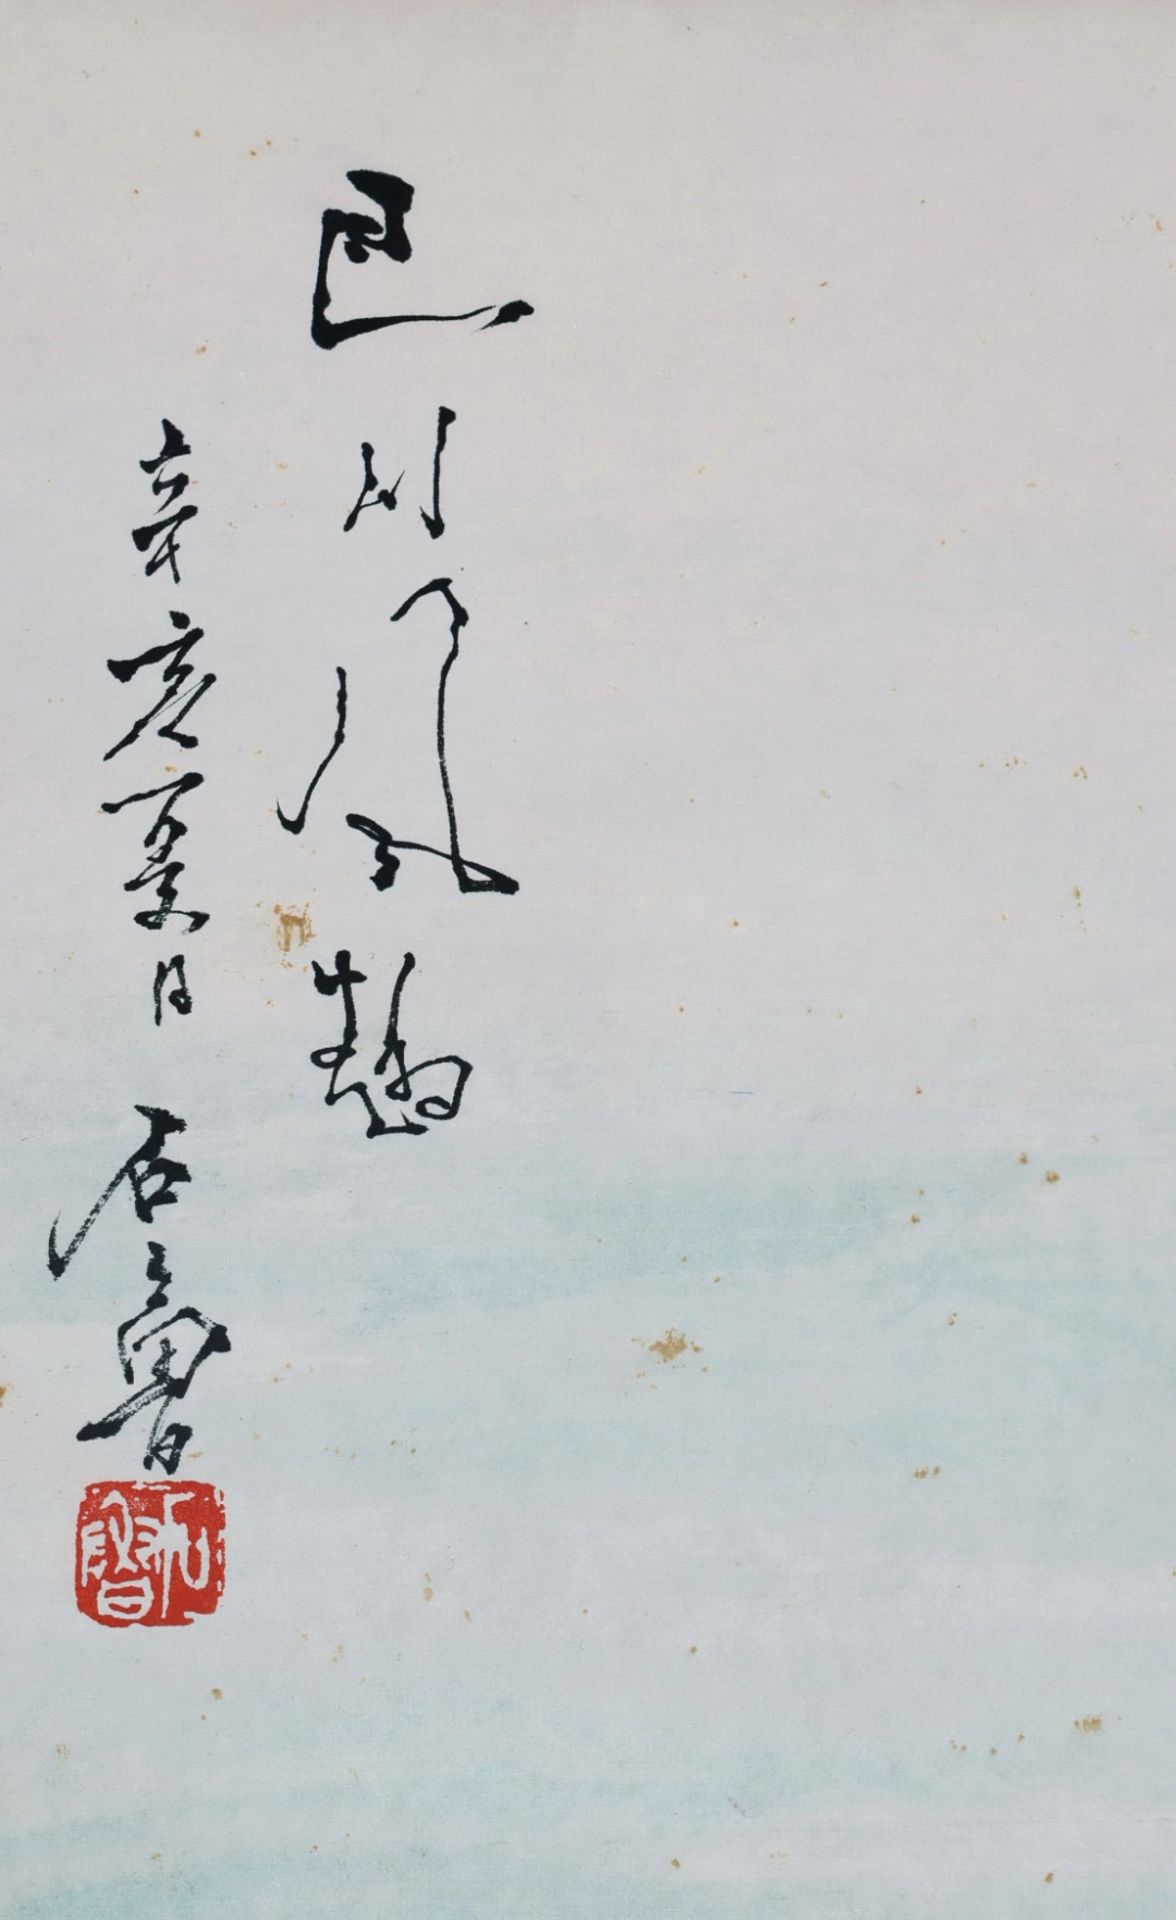 巴川風韵
辛亥夏日 石魯
石魯